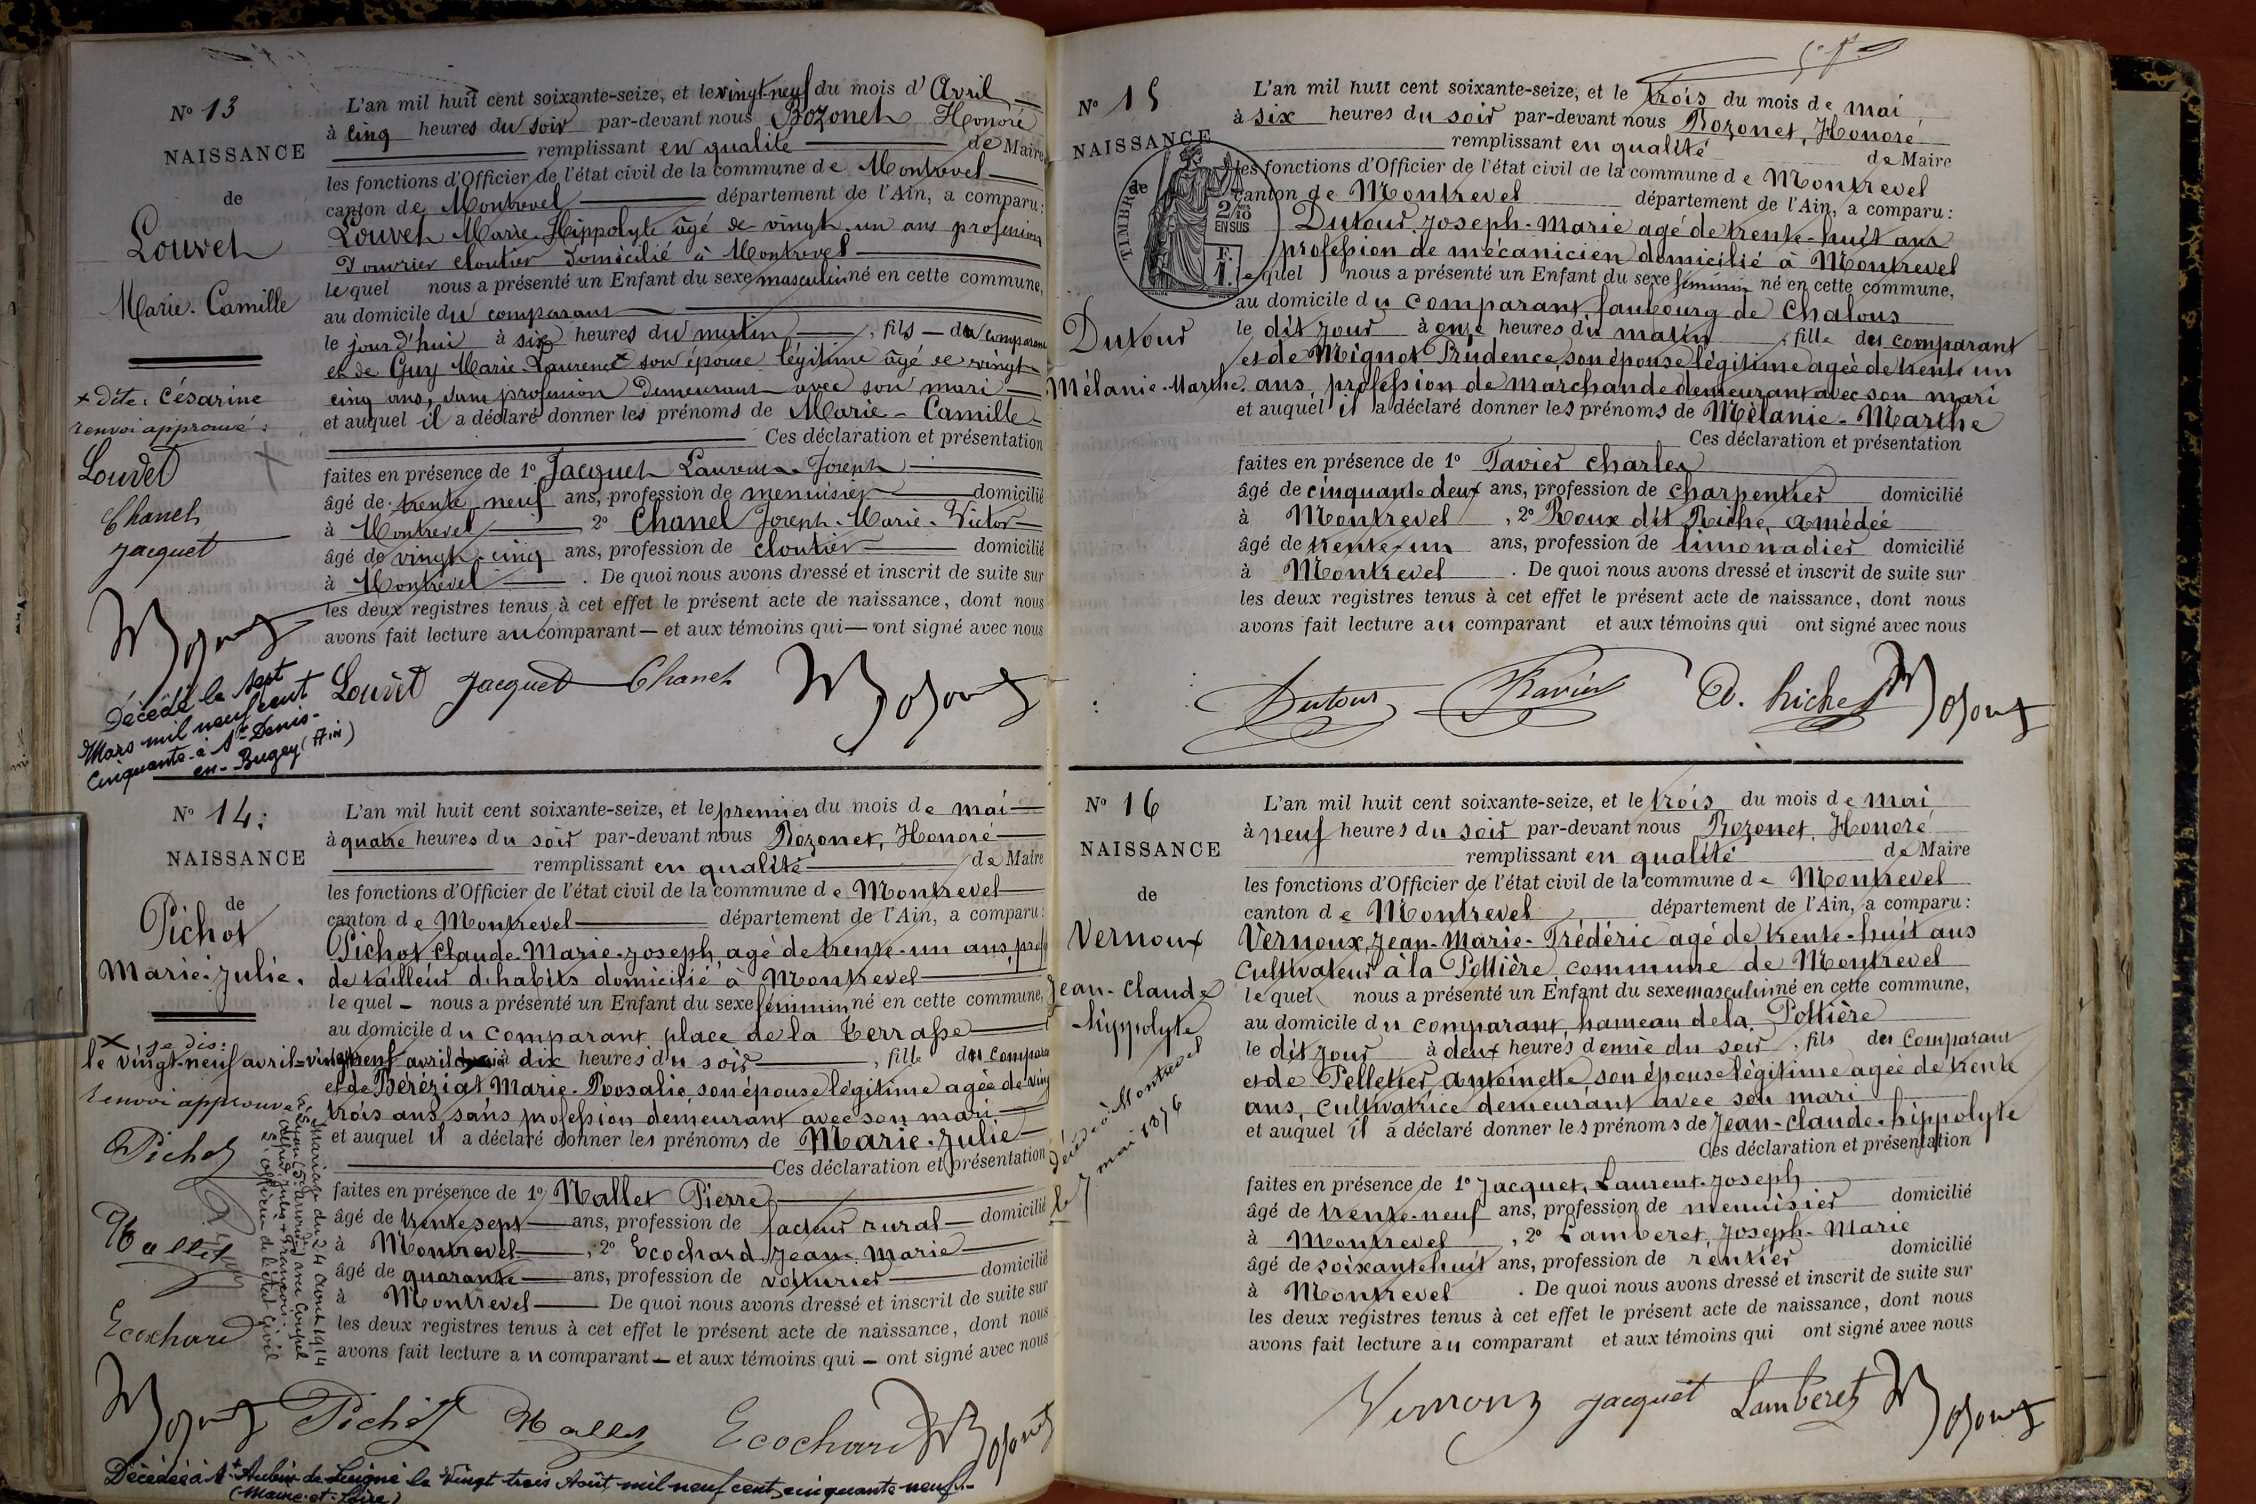 N° 13
NAISSANCE
de
Louvet
Marie-Camille
L'an mil huit cent soixante-seize, et le vingt-neuf du mois d'Avril
à cinq heures du soir par-devant nous Bozonet Honoré
remplissant en qualité de Maire
les fonctions d'Officier de l'état civil de la commune de Montrevel
canton de Montrevel département de l'Ain, a comparu:
Louvet Marie-Hippolyte âgé de vingt-un ans profession
d'ouvrier cloutier domicilié à Montrevel
lequel nous a présenté un Enfant du sexe masculin né en cette commune,
au domicile du comparant
le jour d'hui à six heures du matin, fils du comparant
et de Guy Marie Laurence + son épouse légitime âgé de vingt-
cinq ans, sans profession demeurant avec son mari
et auquel il a déclaré donner les prénoms de Marie-Camille
Ces déclaration et présentation
faites en présence de 1° Jacquet Laurent-Joseph
âgé de trente neuf ans, profession de menuisier domicilié
à Montrevel 2° Chanel Joseph-Marie-Victor
âgé de vingt-cinq ans, profession de cloutier domicilié
à Montrevel. De quoi nous avons dressé et inscrit de suite sur
les deux registres tenus à cet effet le présent acte de naissance, dont nous
avons fait lecture au comparant et aux témoins qui ont signé avec nous
+ dite: Césarine
renvoi approuvé:
Louvet
Chanel
Jacquet
Bozonet
Louvet Jacquet Chanel Bozonet
Décédé le sept
Mars mil neuf cent
Cinquante-à St-Denis-
en-Bugey (Ain)
N° 14:
NAISSANCE
de
Pichot
Marie-Julie.
L'an mil huit cent soixante-seize, et le premier du mois de mai
à quatre heures du soir par-devant nous Bozonet, Honoré
remplissant en qualité de Maire
les fonctions d'Officier de l'état civil de la commune de Montrevel
canton de Montrevel département de l'Ain, a comparu:
Pichot Claude-Marie-Joseph, agé de trente-un ans, prof
de tailleur d'habits domicilié à Montrevel
lequel nous a présenté un Enfant du sexe féminin né en cette commune,
au domicile du comparant place de la Terrasse
vingt neuf avril à dix heures du soir, fille du compara
et de Béréziat Marie-Rosalie, son épouse légitime agée de ving
trois ans sans profession demeurant avec son mari
et auquel il a déclaré donner les prénoms de Marie-Julie
Ces déclaration et présentation
faites en présence de 1° Mallet Pierre
âgé de trente sept ans, profession de facteur rural domicilié
à Montrevel, 2° Ecochard Jean-Marie
âgé de quarante ans, profession de voiturier domicilié
à Montrevel De quoi nous avons dressé et inscrit de suite sur
les deux registres tenus à cet effet le présent acte de naissance, dont nous
avons fait lecture au comparant et aux témoins qui ont signé avec nous
+ je dis:
le vingt-neuf avril
renvoi approuvé
Pichot
Mallet
Ecochard
Mariage du 24 Août 1914
avec Coupel
François
L'officier de l'état civil
Bozonet Pichot Mallet Ecochard Bozonet
Décédée à St Aubin de Luigné le Vingt trois Août mil neuf cent cinquante neuf.-
(Maine-et-Loire)
N° 15
NAISSANCE
de
TIMBRE
2/10
EN SUS
F.
1.
Dutour
Mélanie-Marthe
L'an mil huit cent soixante-seize, et le trois du mois de mai
à six heures du soir par-devant nous Bozonet, Honoré
remplissant en qualité de Maire
les fonctions d'Officier de l'état civil de la commune de Montrevel
canton de Montrevel département de l'Ain, a comparu:
Dutour Joseph-Marie agé de trente-huit ans
profession de mécanicien domicilié à Montrevel
lequel nous a présenté un Enfant du sexe féminin né en cette commune,
au domicile du comparant, faubourg de Chalous
le dit jour à onze heures du matin, fille du comparant
et de Mignot Prudence, son épouse légitime agée de trente un
ans profession de marchande demeurant avec son mari
et auquel il a déclaré donner les prénoms de Mélanie-Marthe
Ces déclaration et présentation
faites en présence de 1° Tavier Charles
âgé de cinquante deux ans, profession de charpentier domicilié
à Montrevel, 2° Roux dit Riche, Amédée
âgé de trente-un ans, profession de limonadier domicilié
à Montrevel. De quoi nous avons dressé et inscrit de suite sur
les deux registres tenus à cet effet le présent acte de naissance, dont nous
avons fait lecture au comparant et aux témoins qui ont signé avec nous
Dutour Tavier Bozonet
N° 16
NAISSANCE
de
Vernoux
Jean-Claude
hippolyte
L'an mil huit cent soixante-seize, et le trois du mois de mai
à neuf heures du soir par-devant nous Bozonet, Honoré
remplissant en qualité de Maire
les fonctions d'Officier de l'état civil de la commune de Montrevel
canton de Montrevel département de l'Ain, a comparu:
Vernoux, Jean-Marie-Frédéric agé de trente-huit ans
Cultivateur à la Pottière commune de Montrevel
lequel nous a présenté un Enfant du sexe masculin né en cette commune,
au domicile du comparant, hameau de la Pottière
le dit jour à deux heures demie du soir, fils du Comparant
et de Pelletier, Antoinette, son épouse légitime agée de trente
ans, Cultivatrice demeurant avec son mari
et auquel il a déclaré donner les prénoms de Jean-Claude-hippolyte
Ces déclaration et présentation
faites en présence de 1° Jacquet, Laurent-Joseph
âgé de trente-neuf ans, profession de menuisier domicilié
à Montrevel, 2° Lamberet, Joseph-Marie
âgé de soixante huit ans, profession de rentier domicilié
à Montrevel. De quoi nous avons dressé et inscrit de suite sur
les deux registres tenus à cet effet le présent acte de naissance, dont nous
avons fait lecture au comparant et aux témoins qui ont signé avec nous
Décédé à Montrevel
le 7 mai 1876
Vernoux Jacquet Lamberet Bozonet